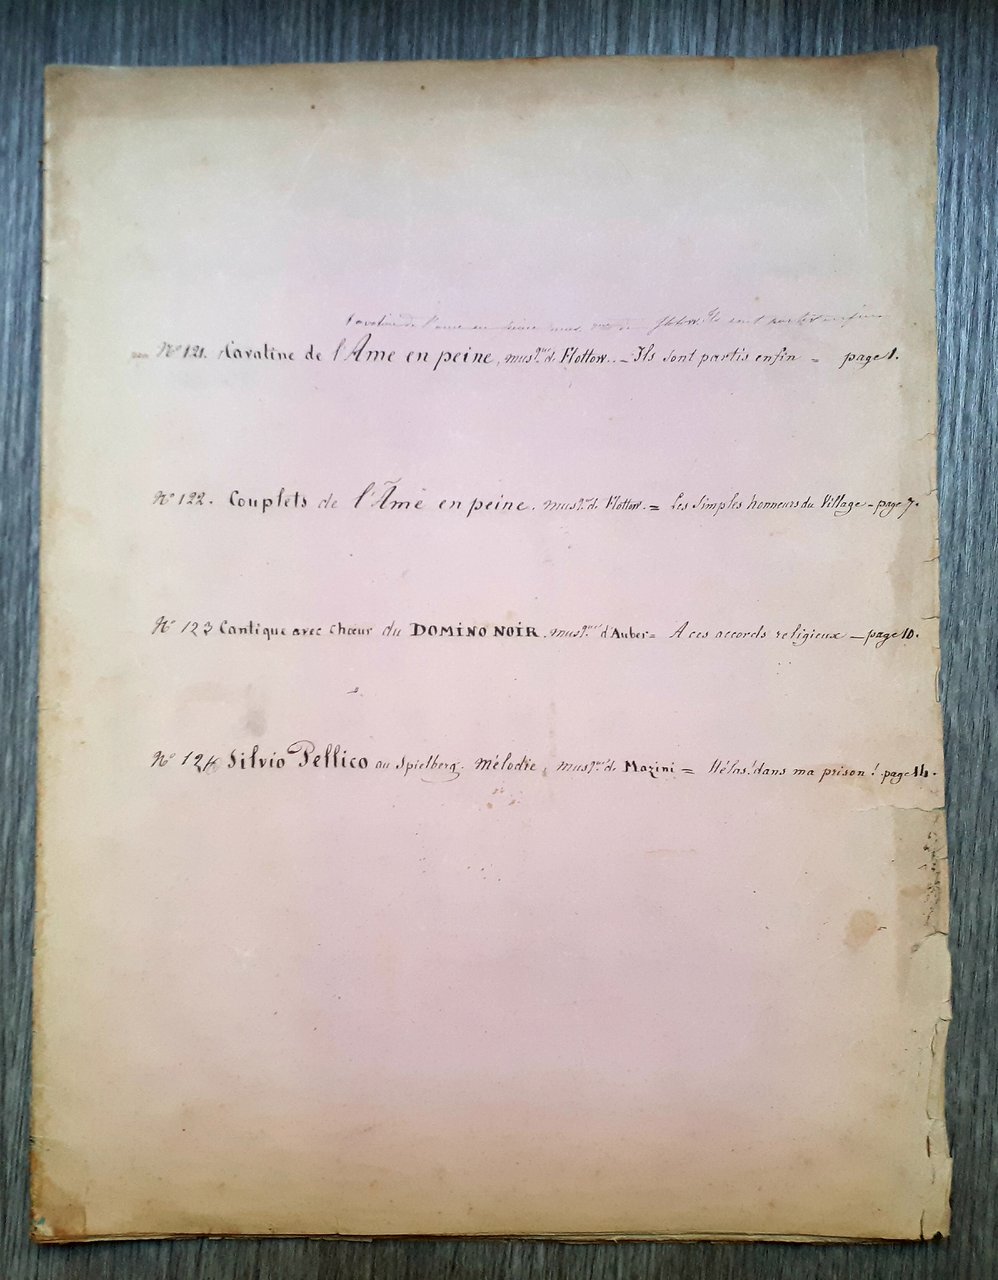 Cavatine de l'ame en peine mus que de Flotow Ils sont partis enfin
No 121. Cavatine de l'Ame en peine, musq.ue d. Flottow. _ Ils sont partis enfin = page 1.
No 122. Couplets de l'Âme en peine. musq.ue d. Flottow. = Les simples honneurs du Village - page 7.
No 123 Cantique avec Chœur du DOMINO NOIR. musq.ue d'Auber = A ces accords religieux _ page 10.
No 124 Silvio Pellico au Spielberg. Mélodie, musq.ue d. Mazini = Hélas! dans ma prison! page 14.